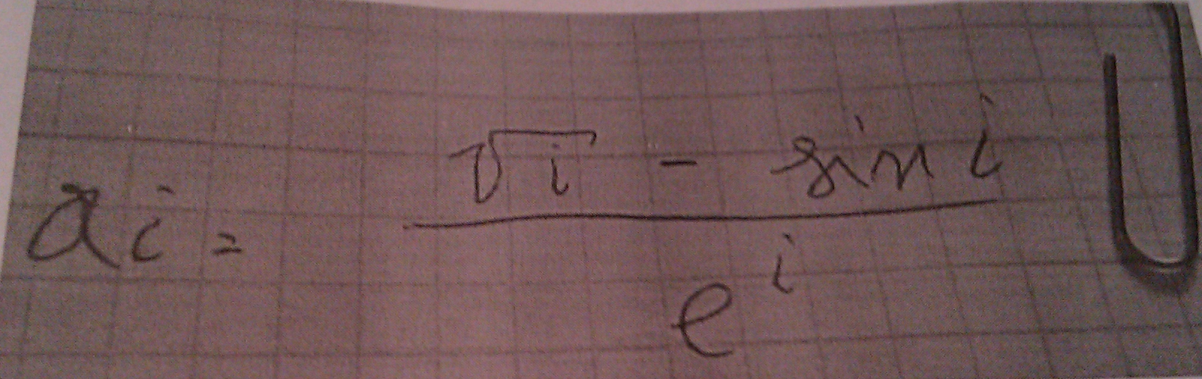 ai = (√i - sin i) / e^i